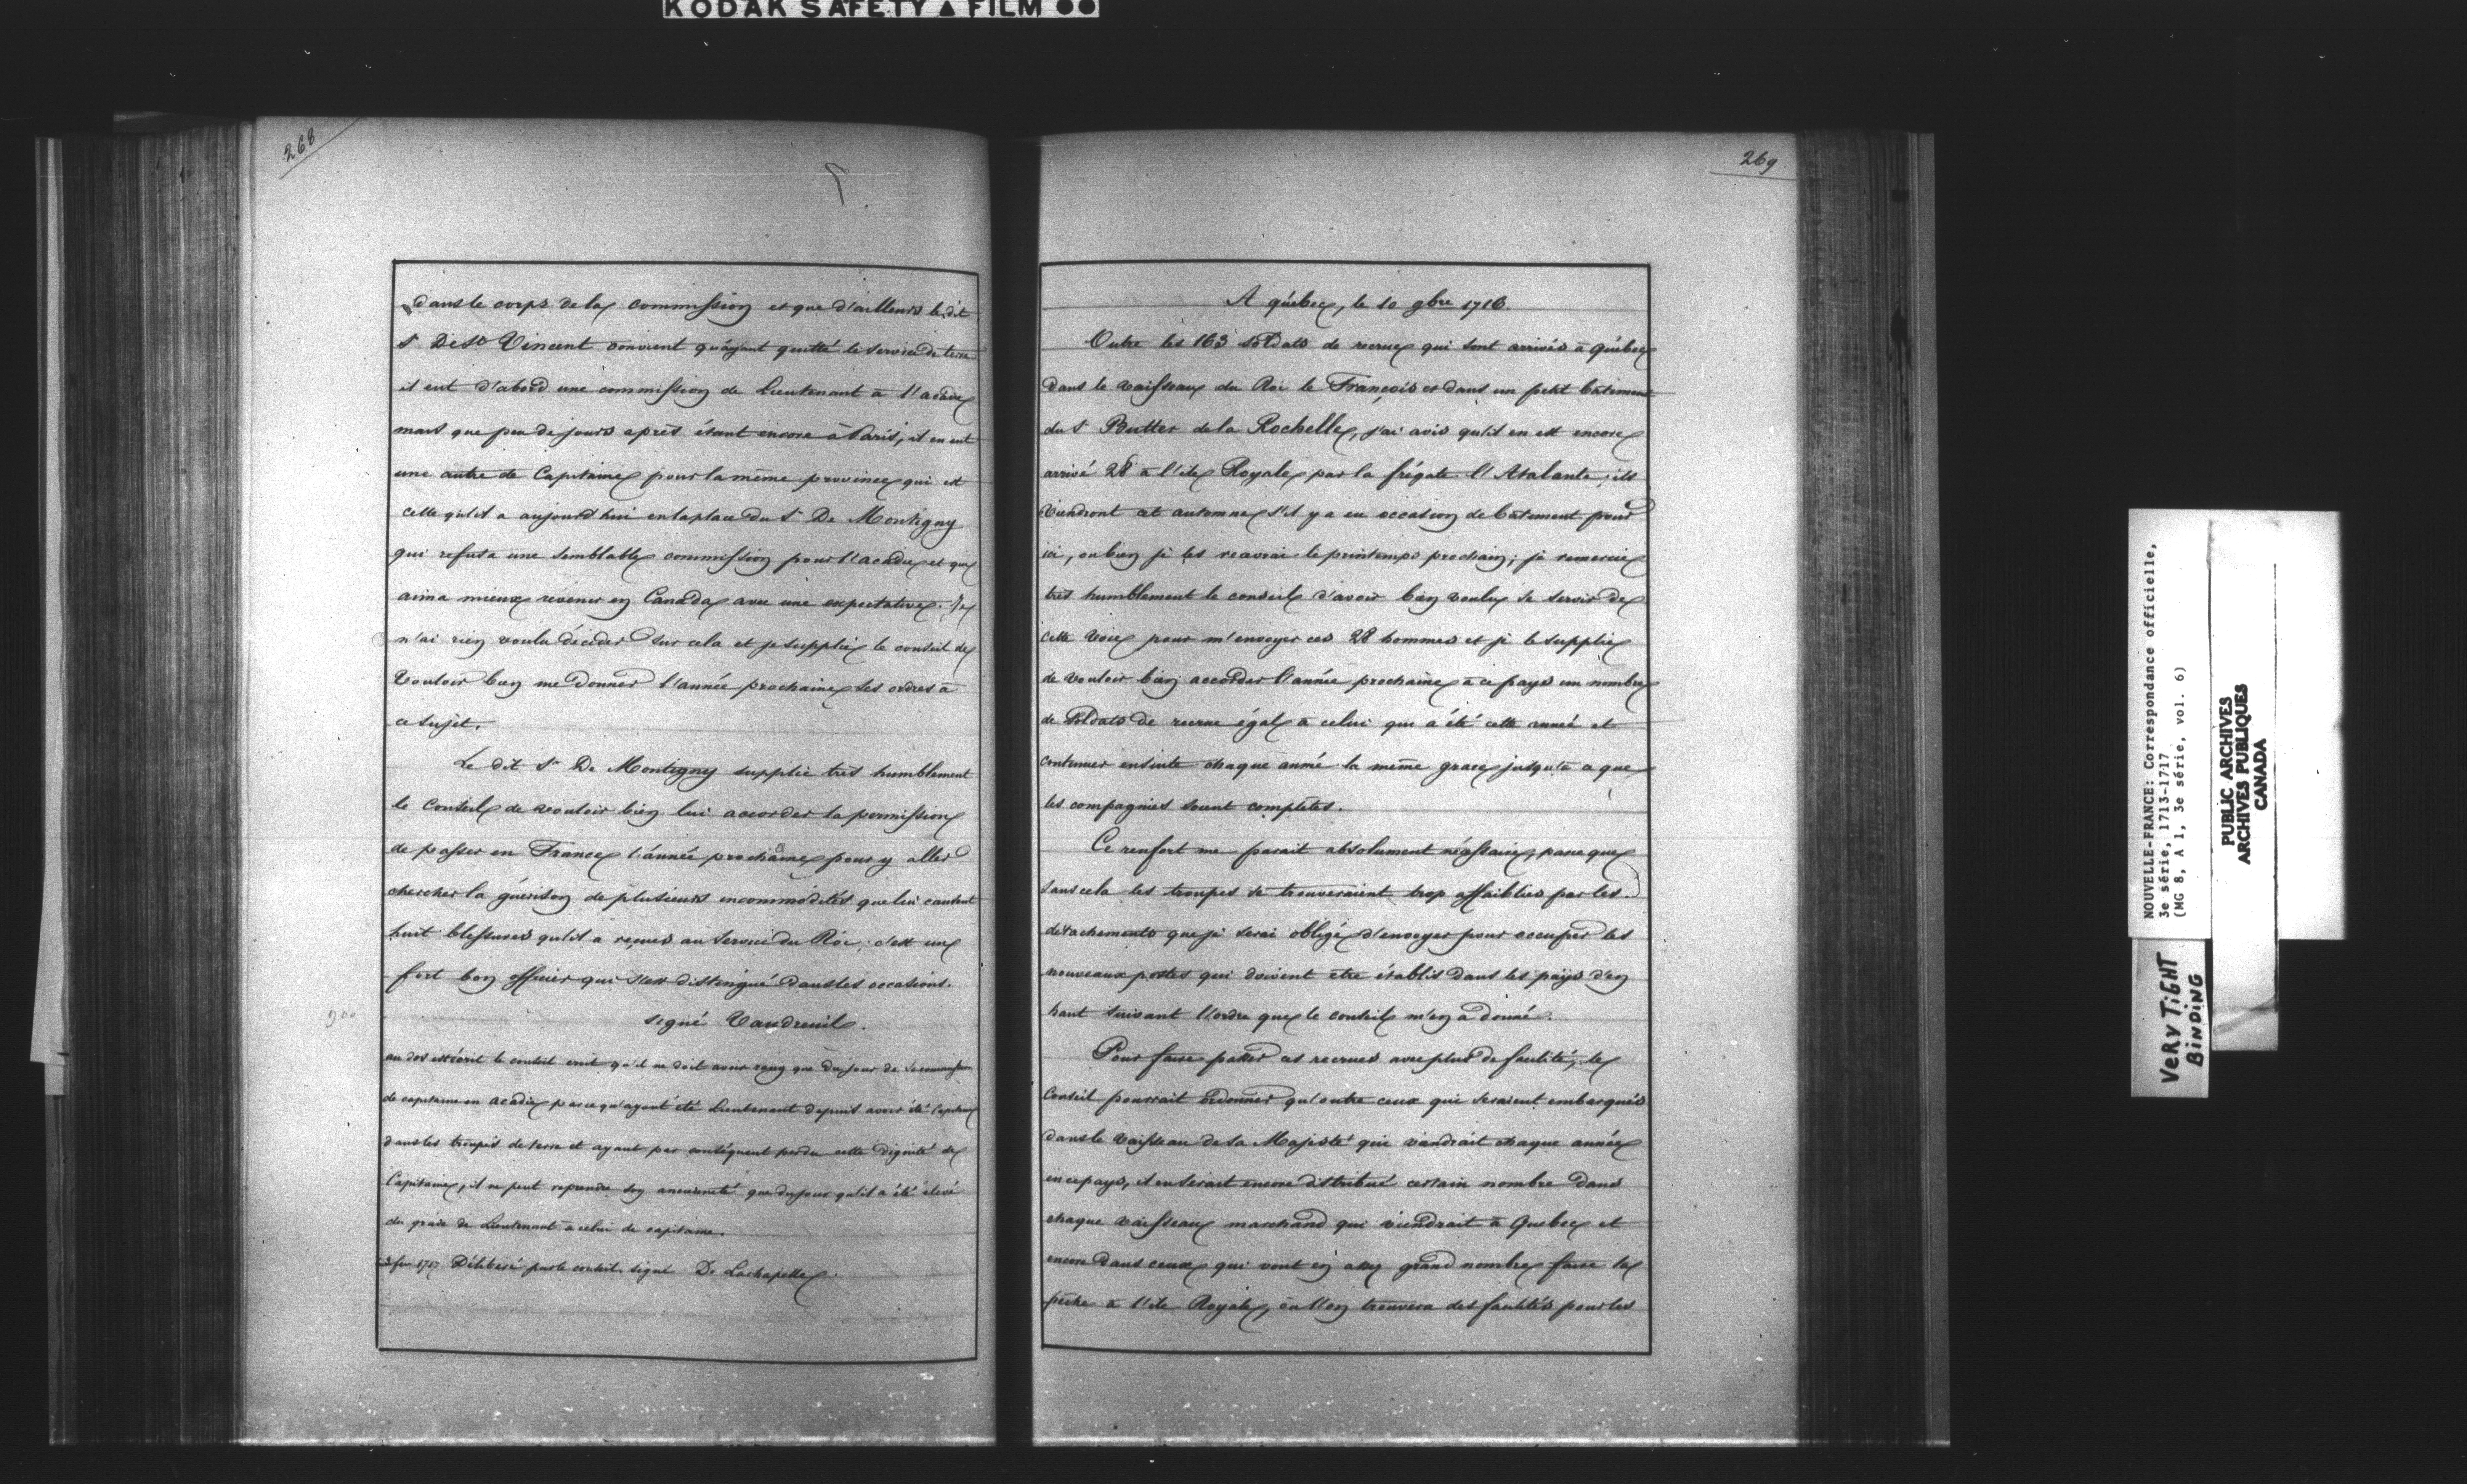 KODAK SAFETY ▲ FILM ●●
268
dans le corps de la commission et que d'ailleurs le dit
Sr De St Vincent convient qu'ayant quitté le service de terre
il eut d'abord une commission de Lieutenant à l'acadie
mais que peu de jours après étant encore à Paris, il en eut
une autre de Capitaine pour la même province qui est
celle qu'il a aujourd'hui en la place du Sr De Montigny
qui refusa une semblable commission pour l'acadie et qui
aima mieux revenir en Canada avec une expectative. Je
n'ai rien voulu décider sur cela et je supplie le conseil de
vouloir bien me donner l'année prochaine ses ordres à
ce sujet.
Le dit Sr De Montigny supplie très humblement
le Conseil de vouloir bien lui accorder la permission
de passer en France l'année prochaine pour y aller
chercher la guérison de plusieurs incommodités que lui causent
huit blessures qu'il a reçues au service du Roi. c'est un
fort bon officier qui s'est distingué dans les occasions.
signé Vaudreuil.
900
au dos est écrit le conseil croit qu'il ne doit avoir rang que du jour de sa commission
de capitaine en acadie parce qu'ayant été Lieutenant depuis avoir été Capitaine
dans les troupes de terre et ayant par conséquent perdu cette dignité de
Capitaine, il ne peut reprendre son ancienneté que du jour qu'il a été élevé
du grade de Lieutenant à celui de capitaine.
fer 1717 Délibéré par le conseil. signé De Lachapelle.
269
A québec, le 10 9bre 1716.
Outre les 163 soldats de recrue qui sont arrivés à Québec
dans le vaisseau du Roi le François et dans un petit bâtiment
du Sr Butter de la Rochelle, j'ai avis qu'il en est encore
arrivé 28 à l'ile Royale par la frégate l'Atalante; ils
viendront cet automne s'il y a eu occasion de bâtiment pour
ici, ou bien je les reaurai le printemps prochain; je remercie
très humblement le conseil d'avoir bien voulu se servir de
cette voie pour m'envoyer ces 28 hommes et je le supplie
de vouloir bien accorder l'année prochaine à ce pays un nombre
de soldats de recrue égal à celui qui a été cette année et
continuer ensuite chaque année la même grace jusqu'à ce que
les compagnies soient complètes.
Ce renfort me parait absolument nécessaire, parce que
sans cela les troupes se trouveraient trop affaiblies par les
détachements que je serai obligé d'envoyer pour occuper les
nouveaux postes qui doivent etre établis dans les pays d'en
haut suivant l'ordre que le conseil m'en a donné.
Pour faire passer ces recrues avec plus de facilité, le
Conseil pourrait ordonner qu'outre ceux qui seraient embarqués
dans le vaisseau de sa Majesté qui viendrait chaque année
en ce pays, il en serait encore distribué certain nombre dans
chaque vaisseau marchand qui viendrait à Quebec et
encore dans ceux qui vont en assez grand nombre faire la
pêche à l'ile Royale, où l'on trouvera des facilités pour les
NOUVELLE-FRANCE: Correspondance officielle,
3e série, 1713-1717
(MG 8, A 1, 3e série, vol. 6)
PUBLIC ARCHIVES
ARCHIVES PUBLIQUES
CANADA
VERY TIGHT
BINDING